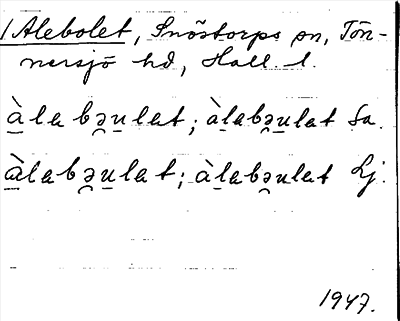 /Alebolet, Snöstorps sn, Tön-
nersjö hd, Hall. l.
àlabəulat; àlabəulat Sa.
àlabəulat; àlabəulat Lj.
1947.